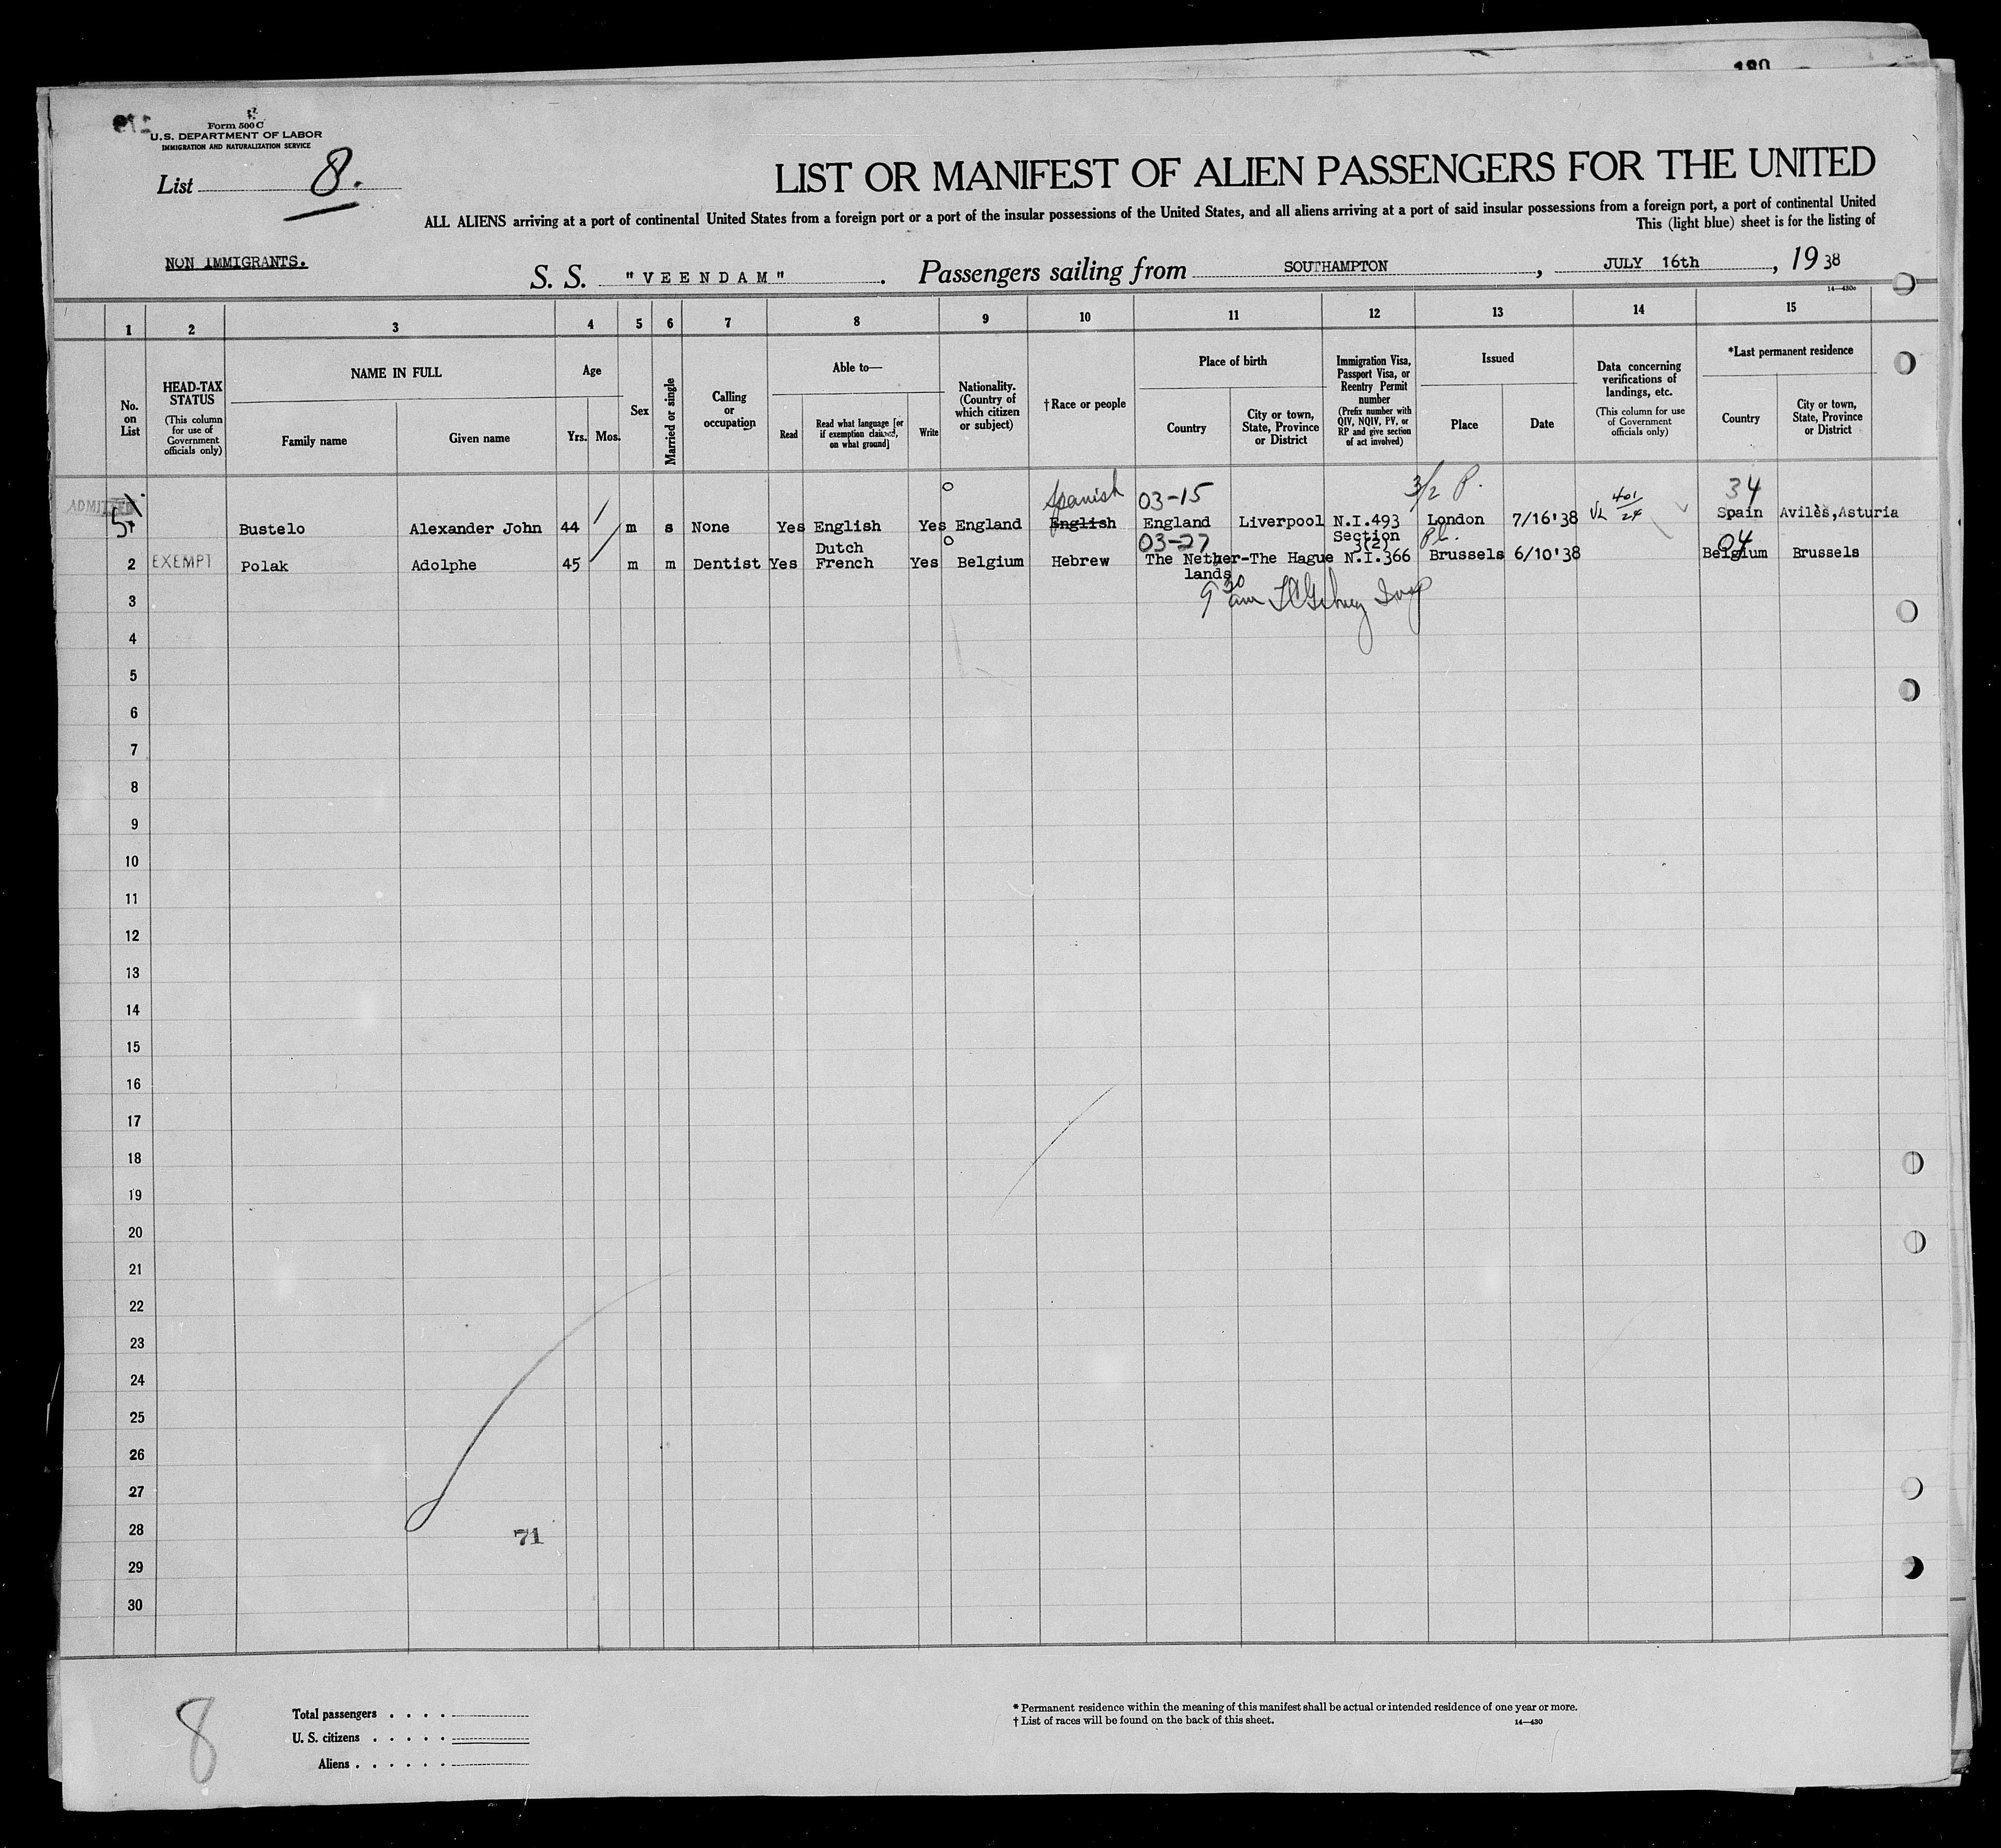 180
Form 500 C
U.S. DEPARTMENT OF LABOR
IMMIGRATION AND NATURALIZATION SERVICE
List 8.
LIST OR MANIFEST OF ALIEN PASSENGERS FOR THE UNITED
ALL ALIENS arriving at a port of continental United States from a foreign port or a port of the insular possessions of the United States, and all aliens arriving at a port of said insular possessions from a foreign port, a port of continental United
This (light blue) sheet is for the listing of
NON IMMIGRANTS.
S. S. "VEENDAM". Passengers sailing from SOUTHAMPTON, JULY 16th, 1938
14—430c
1 2 3 4 5 6 7 8 9 10 11 12 13 14 15
No. on List
HEAD-TAX STATUS
(This column for use of Government officials only)
NAME IN FULL
Family name
Given name
Age
Yrs. Mos.
Sex
Married or single
Calling or occupation
Able to—
Read
Read what language [or if exemption claimed, on what ground]
Write
Nationality. (Country of which citizen or subject)
†Race or people
Place of birth
Country
City or town, State, Province or District
Immigration Visa, Passport Visa, or Reentry Permit number
(Prefix number with QIV, NQIV, PV, or RP and give section of act involved)
Issued
Place
Date
Data concerning verifications of landings, etc.
(This column for use of Government officials only)
*Last permanent residence
Country
City or town, State, Province or District
Spanish 03-15 3/2 P. 401/24 34
ADMITTED
Bustelo Alexander John 44 m s None Yes English Yes England English England Liverpool N.I.493 London 7/16'38 Spain Avilès,Asturia
Section
Dutch 03-27 3(2) 04
2 EXEMPT Polak Adolphe 45 m m Dentist Yes French Yes Belgium Hebrew The Nether-The Hague N.I.366 Brussels 6/10'38 Belgium Brussels
lands
9 30 am
3
4
5
6
7
8
9
10
11
12
13
14
15
16
17
18
19
20
21
22
23
24
25
26
27
28
71
29
30
8
Total passengers . . . .
U. S. citizens . . . . .
Aliens . . . . . .
* Permanent residence within the meaning of this manifest shall be actual or intended residence of one year or more.
† List of races will be found on the back of this sheet.
14—430